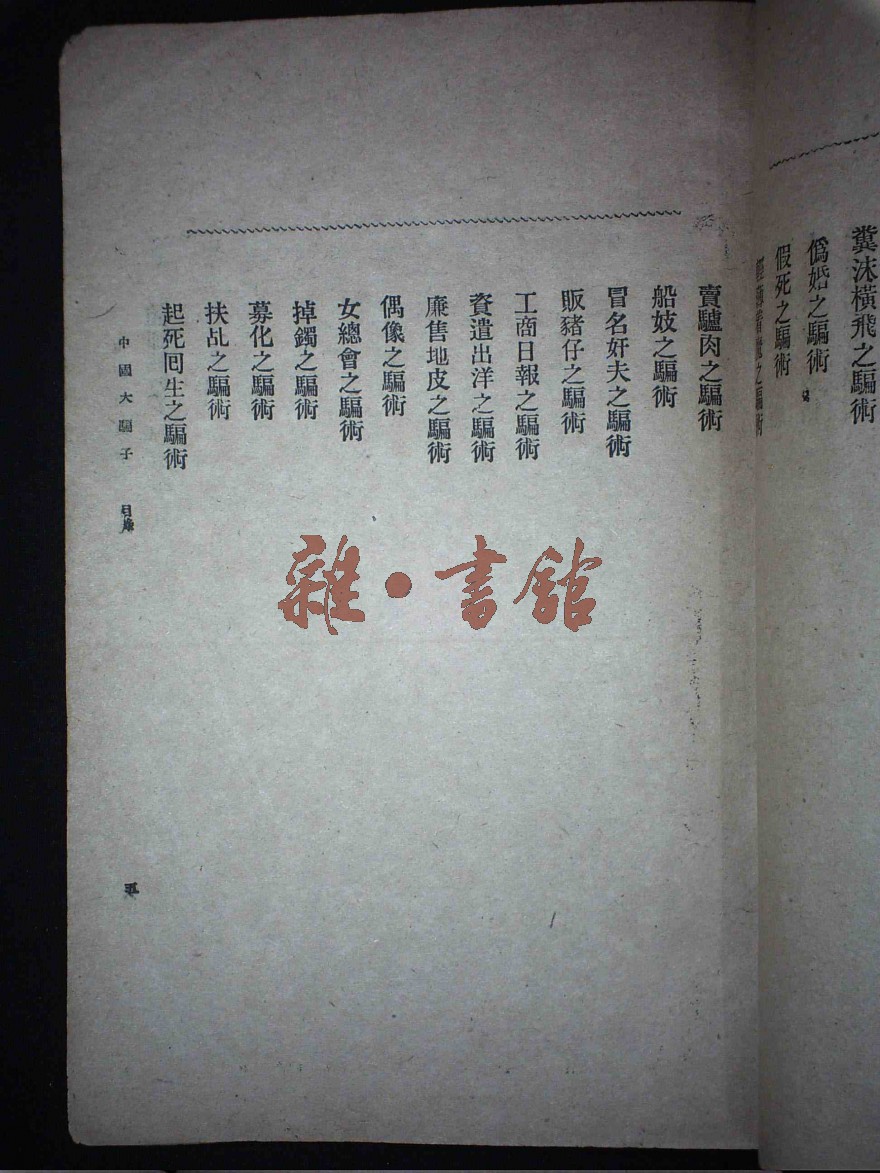 糞沫橫飛之騙術
僞婚之騙術
假死之騙術
之騙術
賣驢肉之騙術
船妓之騙術
冒名奸夫之騙術
販豬仔之騙術
工商日報之騙術
資遣出洋之騙術
廉售地皮之騙術
偶像之騙術
女總會之騙術
掉鐲之騙術
募化之騙術
扶乩之騙術
起死囘生之騙術
中國大騙子 目錄
五
雜·書館